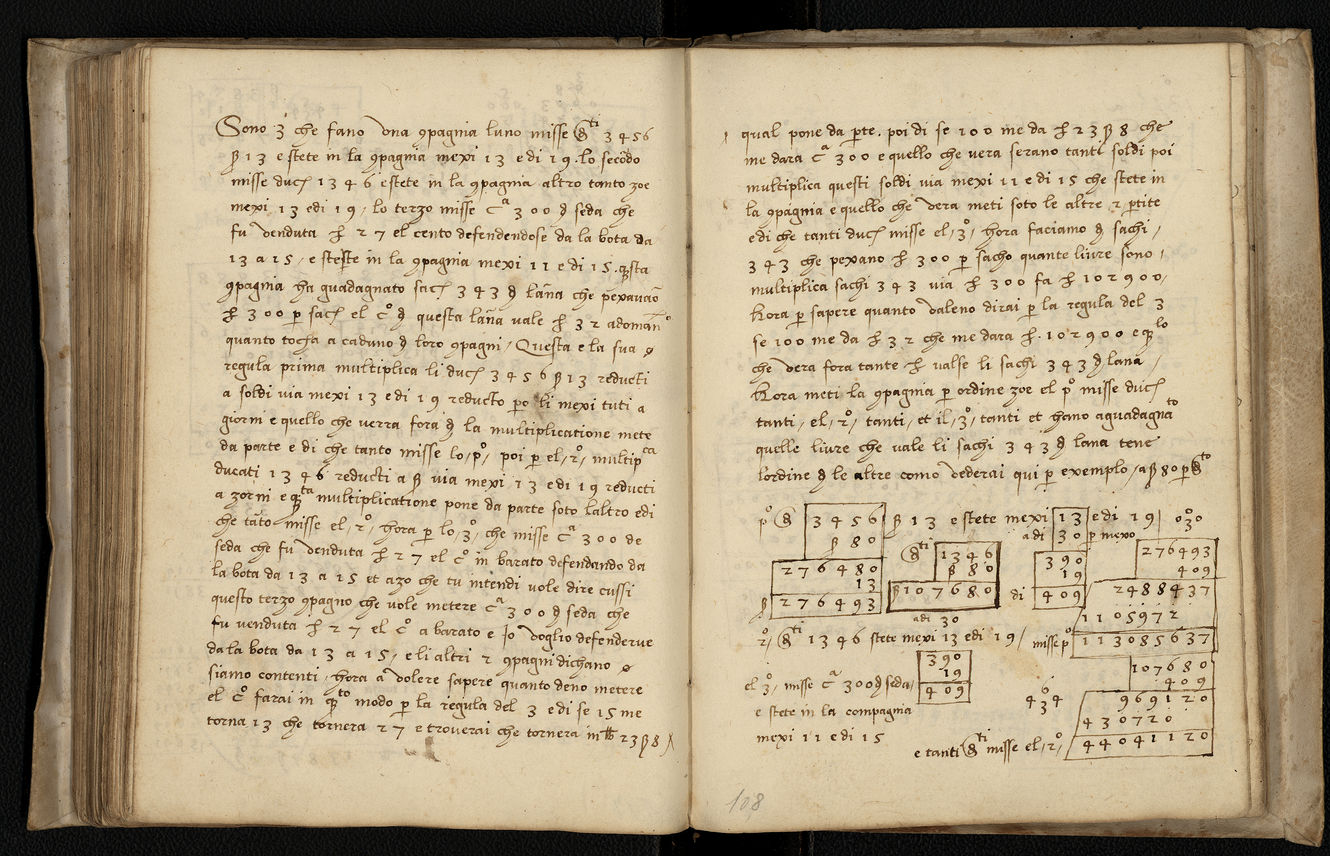 Sono 3 che fano una 9pagnia luno misse δti 3456
β 13 e stete in la 9pagnia mexi 13 e di 19. lo secōdo
misse ducʃ 1346 e stete in la 9pagnia altro tanto zoe
mexi 13 e di 19, lo terzo misse Ca 300 d seda che
fu venduta £ 27 el cento defendendose da la bota da
13 a 15, e stefte in la 9pagnia mexi 11 e di 15. qsta
9pagnia ha guadagnato sacʃ 343 d lāna che pexavaō
£ 300 p sacʃ el Co d questa lāna vale £ 32 adomano
quanto tocha a caduno d loro 9pagni, Questa e la sua
regula prima multiplica li ducʃ 3456 β 13 reducti
a soldi via mexi 13 e di 19 reducto po li mexi tuti a
giorni e quello che verra fora d la multiplicatione mete
da parte e di che tanto misse lo, po, poi p el, 2o, multipca
ducati 1346 reducti a β via mexi 13 e di 19 reducti
a zorni e qta multiplicatione pone da parte soto laltro e di
che tāto misse el, 2o, hora p lo, 3o, che misse Ca 300 de
seda che fu venduta £ 27 el Co in barato defendando da
la bota da 13 a 15 et azo che tu intendi vole dire cussi
questo terzo 9pagno che vole metere Ca 300 d seda che
fu venduta £ 27 el Co a barato e Jo voglio defenderve
da la bota da 13 a 15, e li altri 2 9pagni dichano
siamo contenti, hora a volere sapere quanto deno metere
el Co farai in qto modo p la regula del 3 e di se 15 me
torna 13 che tornera 27 e troverai che tornera in £ 23 β 8
qual pone da pte. poi di se 100 me da £ 23 β 8 che
me dara Ca 300 e quello che vera serano tanti soldi poi
multiplica questi soldi via mexi 11 e di 15 che stete in
la 9pagnia e quello che vera meti soto le altre 2 ptite
e di che tanti ducʃ misse el, 3o, hora faciamo d sachi,
343 che pexano £ 300 p sacho quante liure sono,
multiplica sachi 343 via £ 300 fa £ 102900,
hora p sapere quanto valeno dirai p la regula del 3
se 100 me da £ 32 che me dara £. 102900 e qlo
che vera fora tante £ valse li sachi 343 d lana,
hora meti la 9pagnia p ordine zoe el po misse ducʃ
tanti, el, 2o, tanti, et il, 3o, tanti et hano aguadagnato
quelle liure che vale li sachi 343 d lana tene
lordine d le altre como vederai qui p exemplo, a β 80 p δto
po δ 3456 β 13 e stete mexi 13 e di 19
β 80
276480
13
β 276493
δti 1346
β 80
β 107680
a di 30 p mexo
390
19
di 409
030
276493
409
2488437
1105972
misse po 113085637
a di 30
2o, δti 1346 stete mexi 13 e di 19,
390
19
409
el 3o, misse Ca 300 d seda,
e stete in la compagnia
mexi 11 e di 15
107680
409
969120
430720
44041120
0
434
e tanti δti misse el, 2o,
108